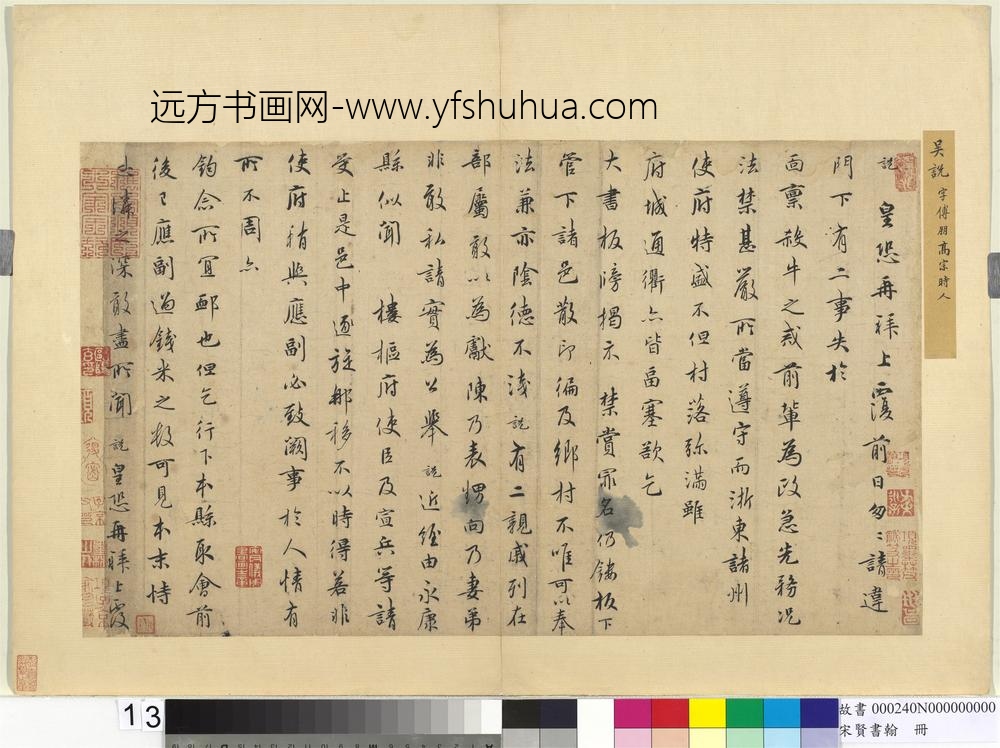 远方书画网-www.yfshuhua.com
吴説 字傅朋高宗時人
説 皇恐再拜上覆前日匆匆請違
門下有二事失於
面稟殺牛之戒前輩為政急先務况
法禁甚嚴所當遵守而浙東諸州
使府特盛不但村落弥滿雖
府城通衢亦皆畐塞欲乞
大書板牓揭示 禁賞罪名仍鏤板下
管下諸邑散印徧及鄉村不唯可以奉
法兼亦陰德不淺説有二親戚列在
部屬敢以為獻陳乃表甥向乃妻弟
非敢私請實為公舉 説近經由永康
縣似聞 樓樞府使臣及宣兵等請
受止是邑中逐旋那移不以時得若非
使府稍與應副必致闕事於人情有
所不周亦
鈞念所宜卹也但乞行下本縣取會前
後已應副過錢米之數可見本末恃
憐之深敢盡所聞 説皇恐再拜上覆
13
故書 000240N000000000
宋賢書翰 冊